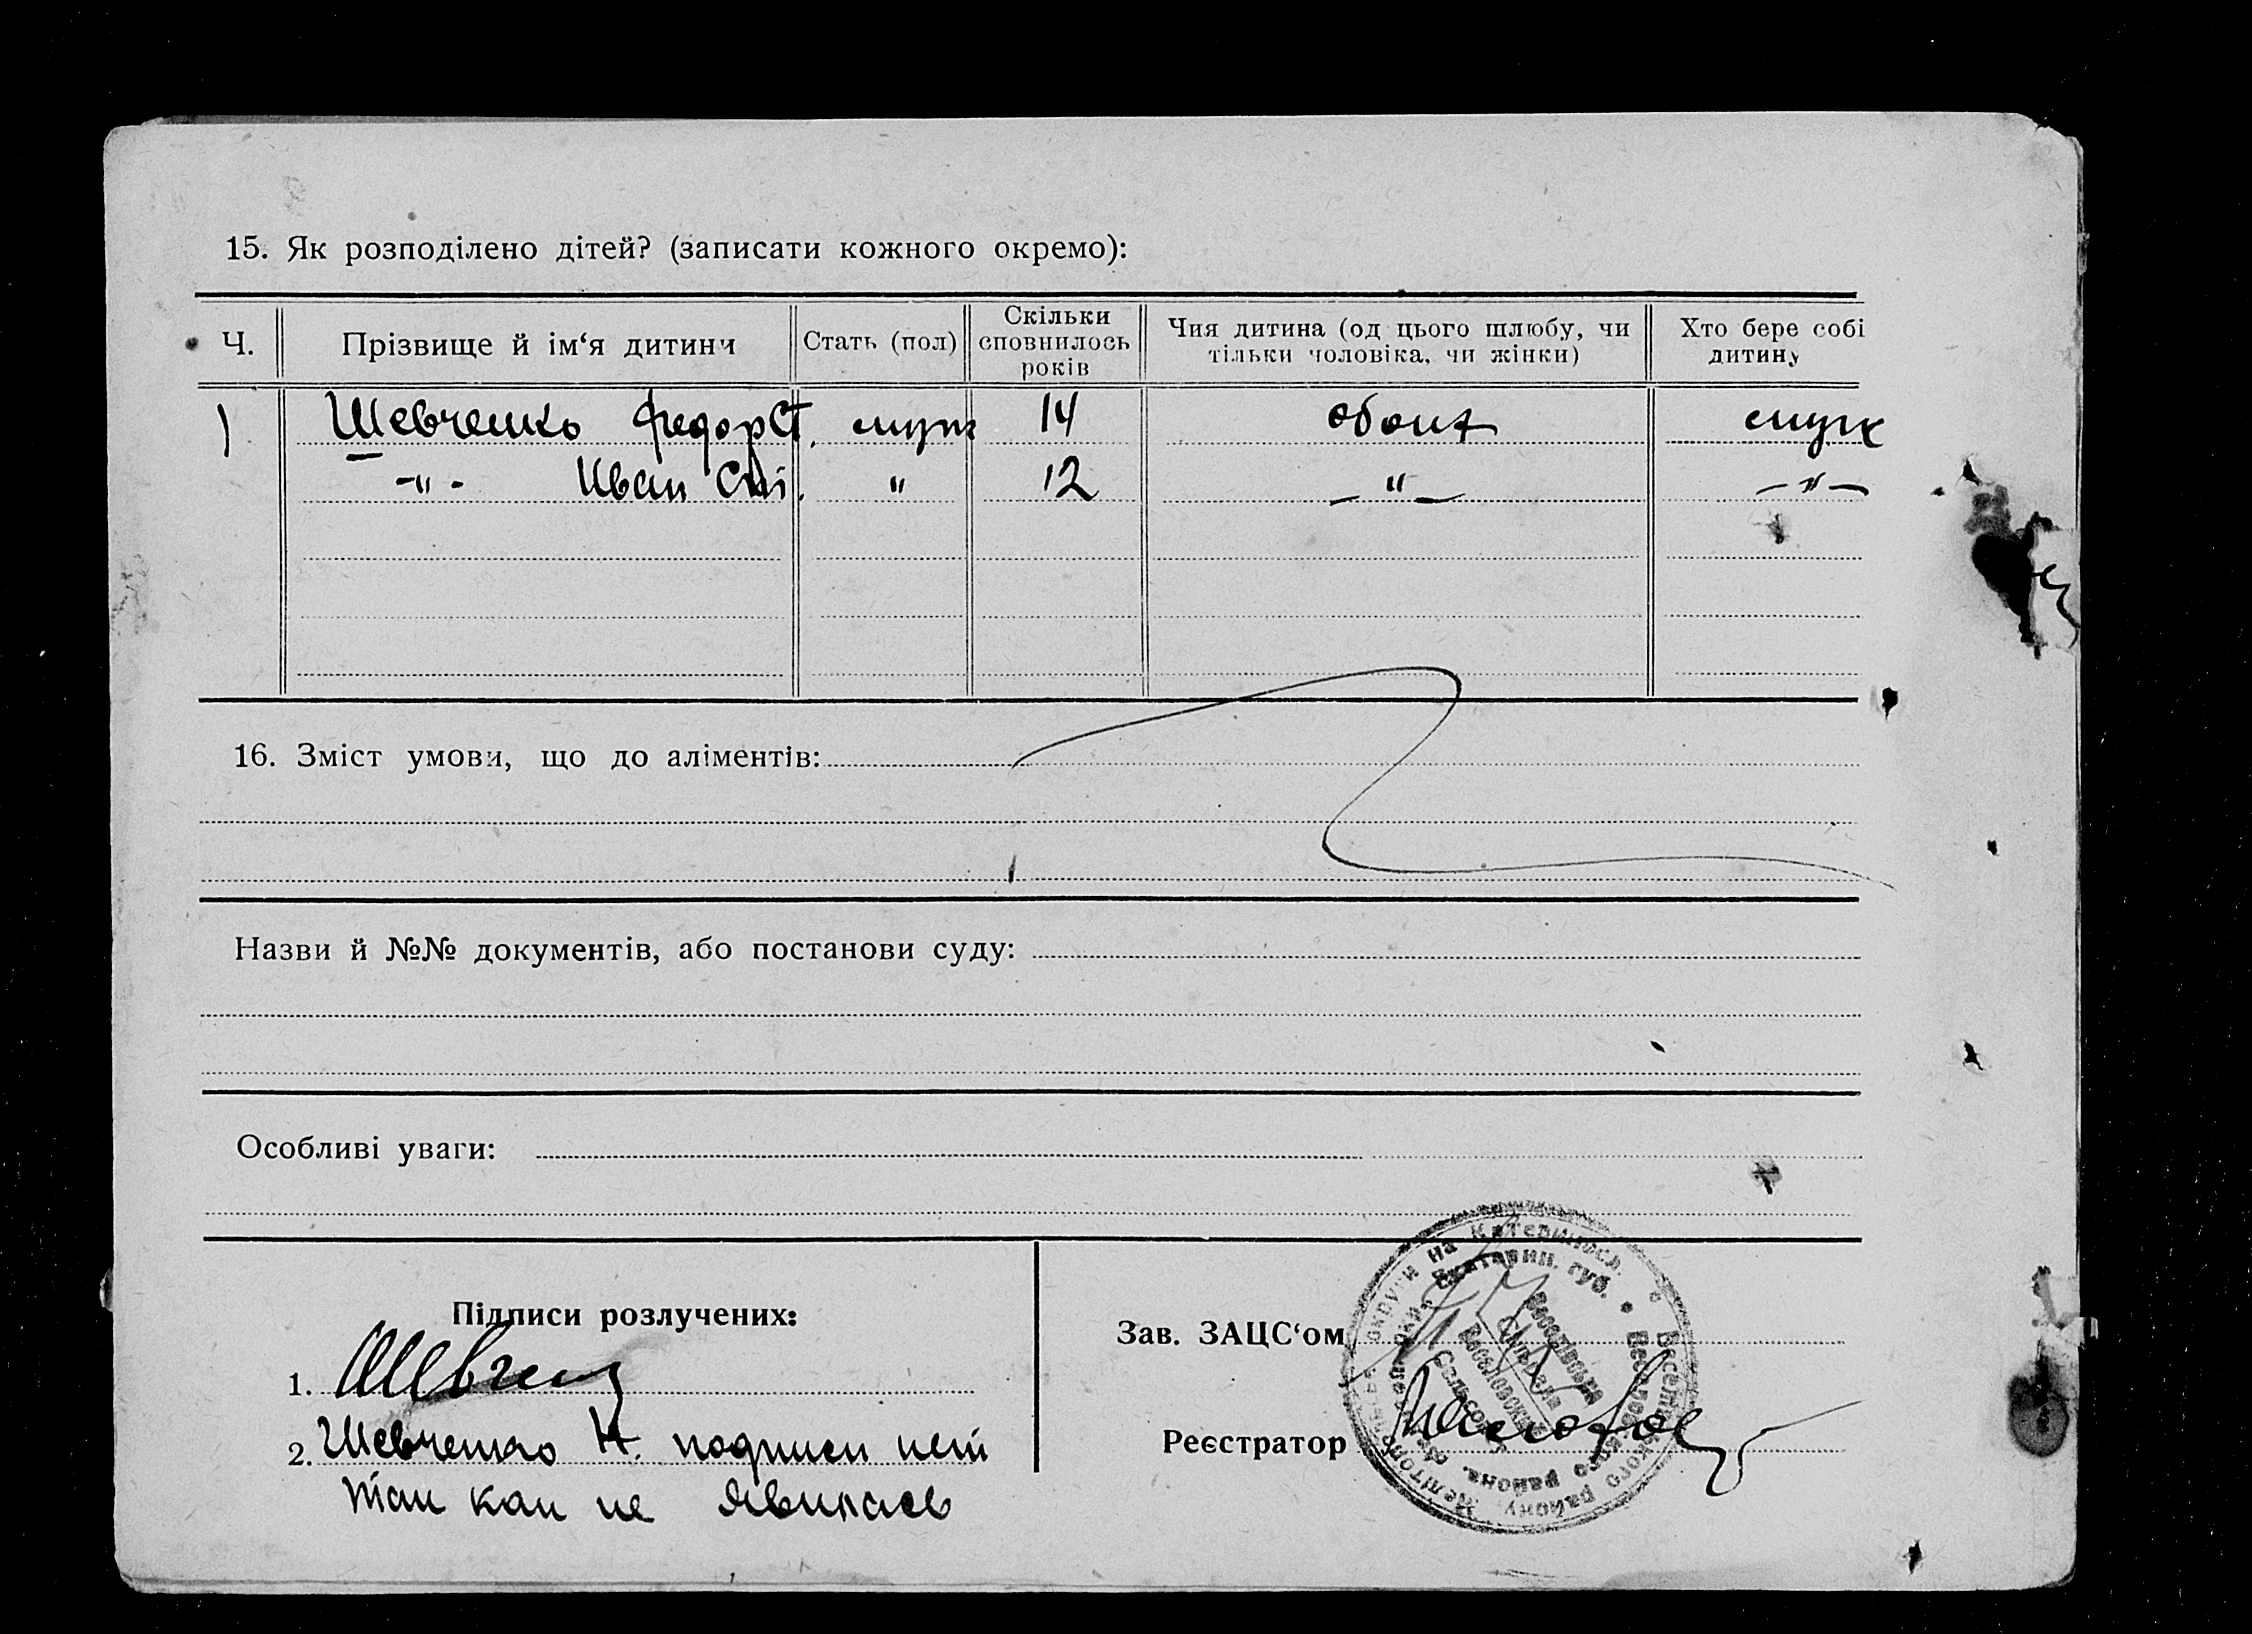 15. Як розподілено дітей? (записати кожного окремо):
Ч. Прізвище й ім‘я дитини Стать (пол) Скільки сповнилось років Чия дитина (од цього шлюбу, чи тільки чоловіка, чи жінки) Хто бере собі дитину
1 Шевченко Федор Ст. муж 14 обоих муж
-"- Иван " 12 -"- -"-
16. Зміст умови, що до аліментів:
Назви й №№ документів, або постанови суду:
Особливі уваги:
Підписи розлучених:
1. Шевченко
2. Шевченко Н. подписи нет
так как не явилась
Зав. ЗАЦС‘ом
Реєстратор
округи на Катериносл.
Веселівського району
Екатерин. губ.
Веселовского района
Веселівська
Сільрада
Веселовский
Сельсовет